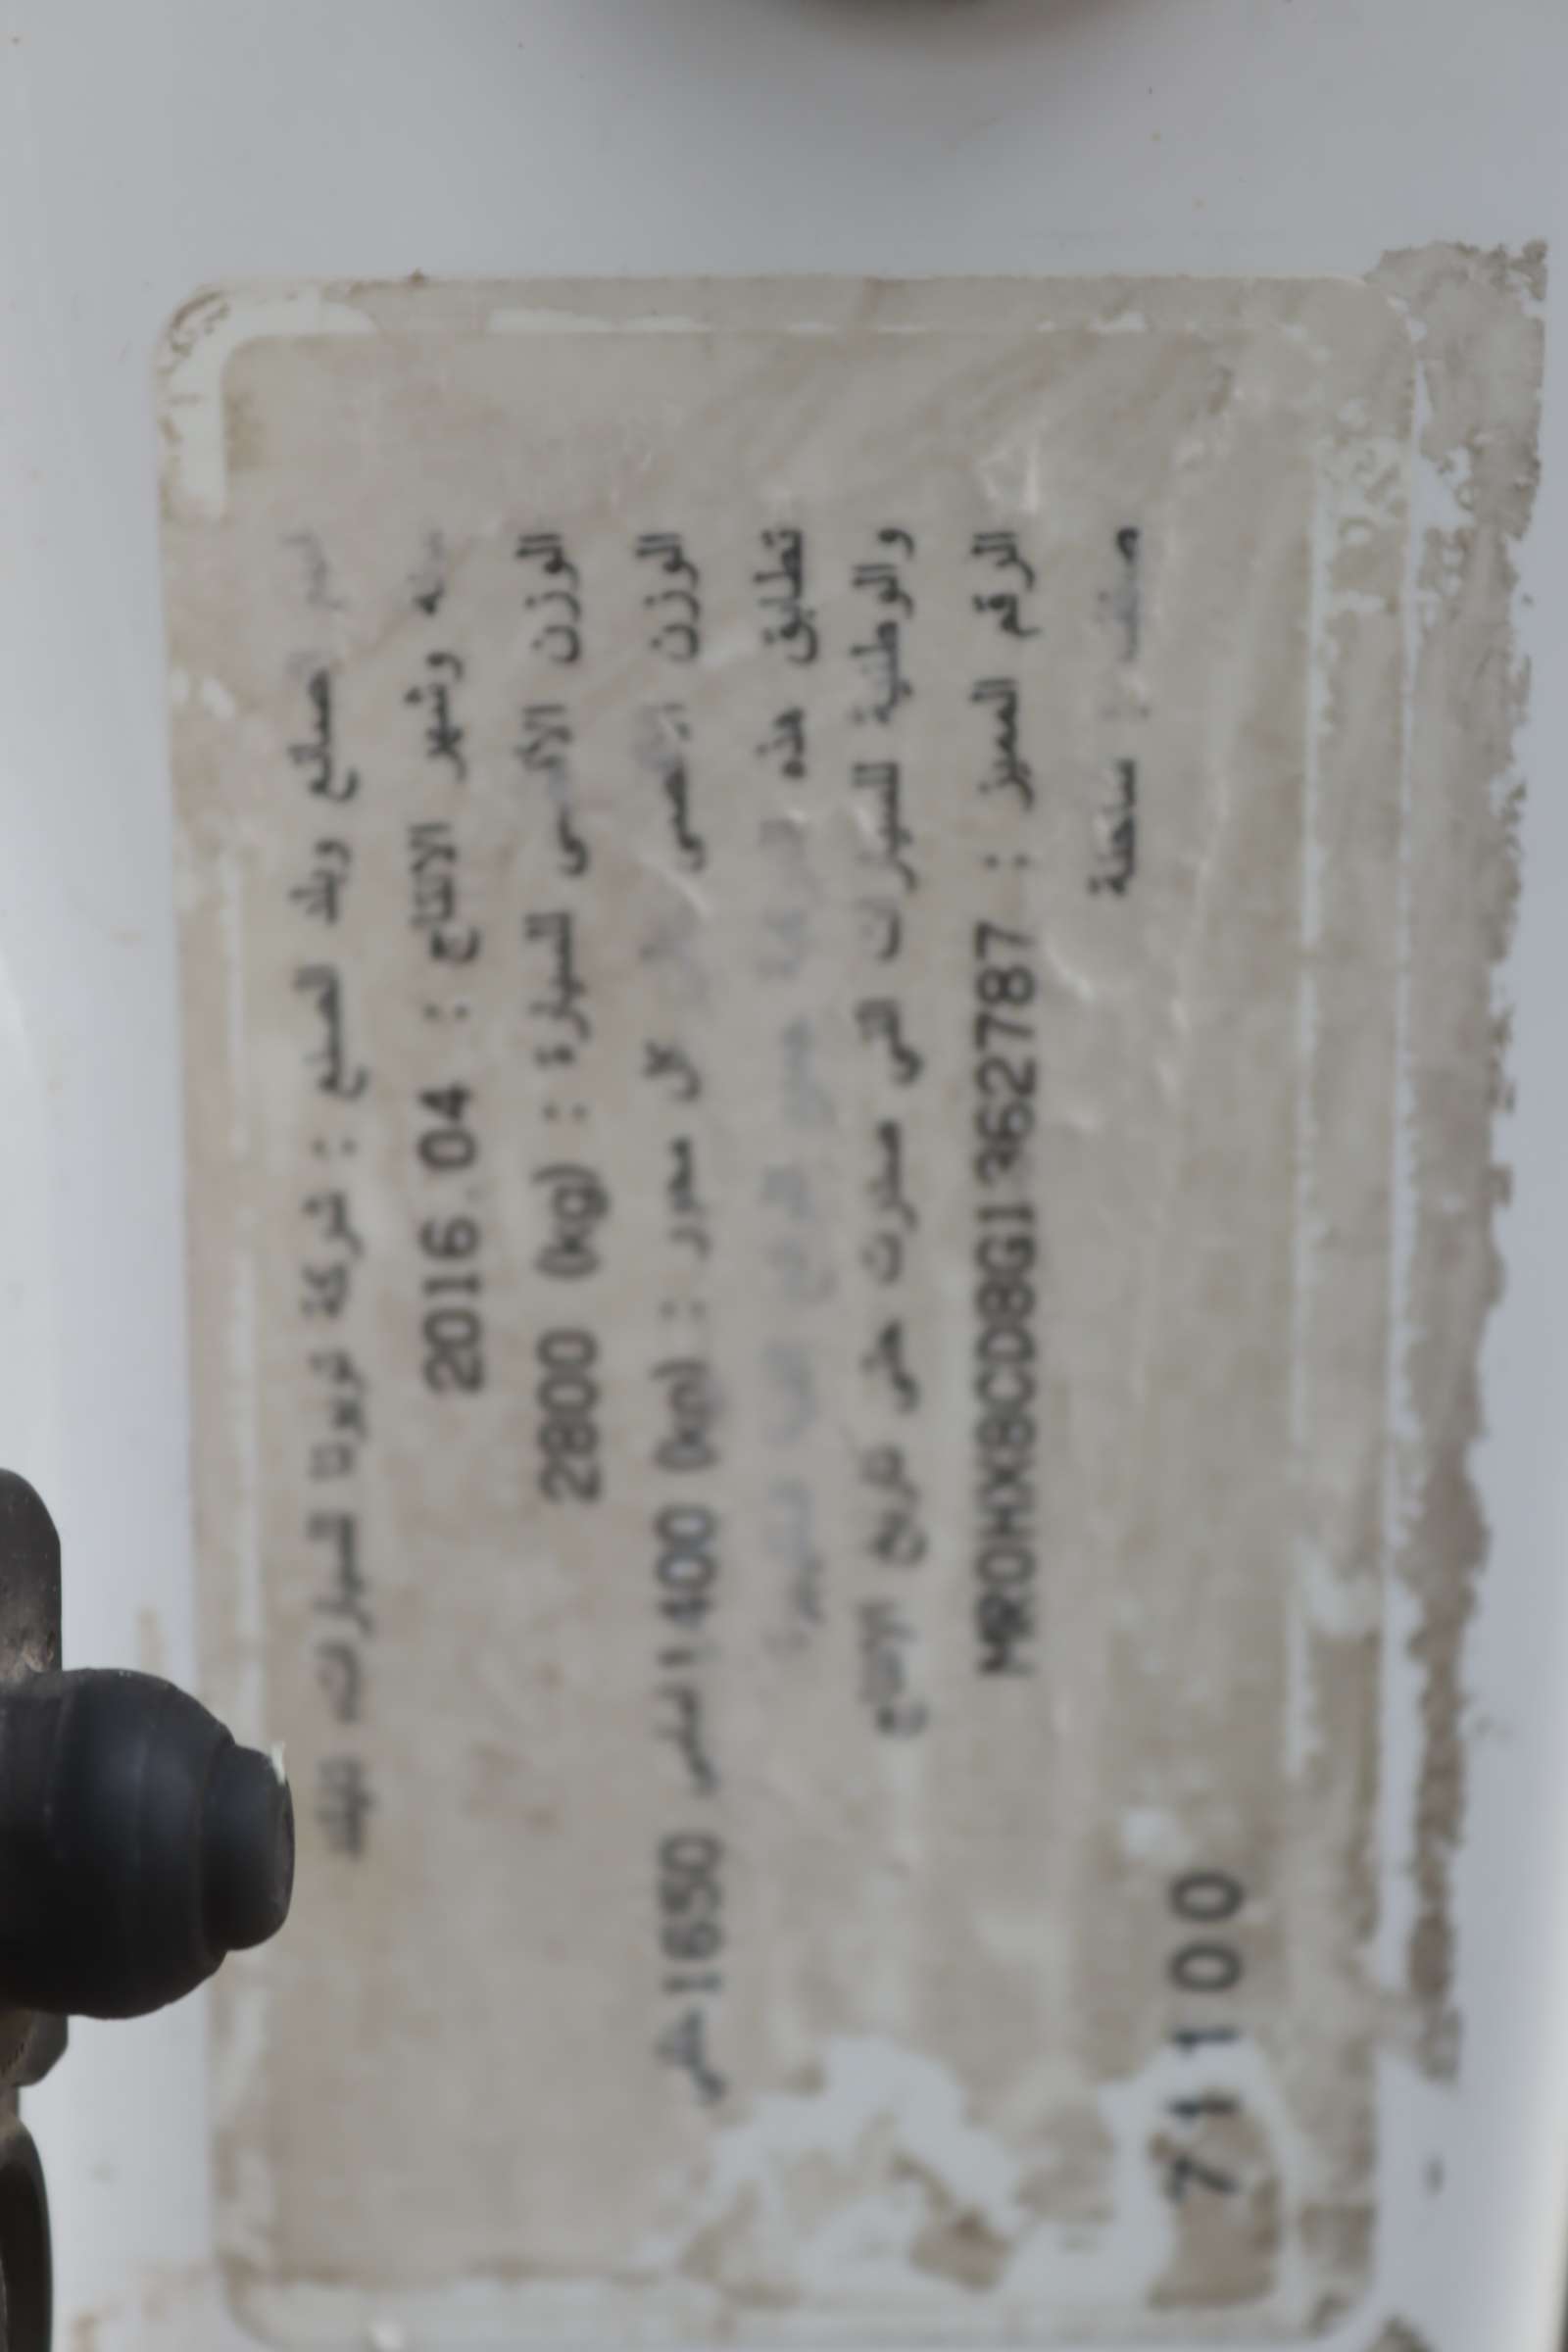 اسم الصانع وبلد الصنع : شركة تويوتا للسيارات، تايلاند
سنة وشهر الانتاج : 2016.04
الوزن الأقصى للسيارة : 2800 (kg)
الوزن الأقصى على كل محور : (kg) 1400 امامى 1650 خلفى
تطابق هذه
والوطنية للسيارات التى صدرت حتى تاريخ الانتاج
الرقم المميز : MR0HX8CD8G1362787
صنف : شاحنة
71100